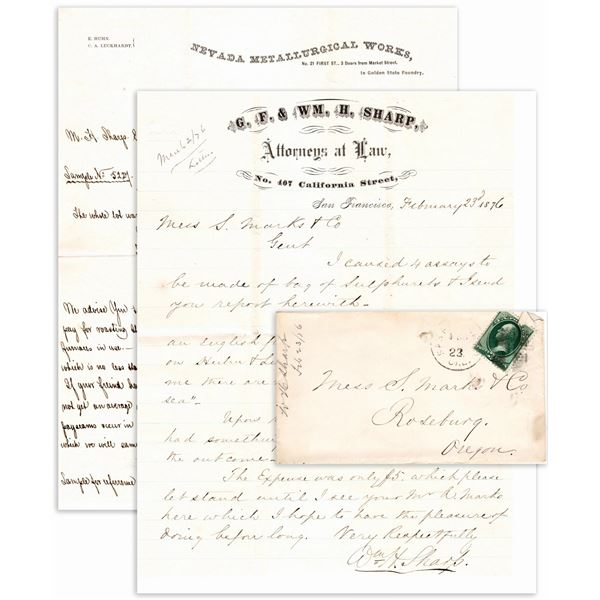 E. HUHN.
C. A. LUCKHARDT.
NEVADA METALLURGICAL WORKS,
No. 21 FIRST ST., 3 Doors from Market Street.
In Golden State Foundry.
Sharp
Sample No 5227.
The whole lot wa
We advise You
pay for roasting
furnaces in use —
which is no less
If your friend ha
not get an average
occur in
which we will
Sample for reference
G. F. & WM. H. SHARP,
Attorneys at Law,
No. 407 California Street,
San Francisco, February 23d 1876
Mess S. Marks & Co
Gent
I caused 4 assays to
be made of bag of Sulphurets & I send
you report herewith —
an english
on
me there are
sea".
Upon
had somethin
the outcome —
The Expense was only $5. which please
let stand until I see your Mr Marks
here which I hope to have the pleasure of
doing before long. Very Respectfully
Wm H. Sharp.
Wm H Sharp
Feb 23/76
23
Mess S. Marks & Co
Roseburg.
Oregon.